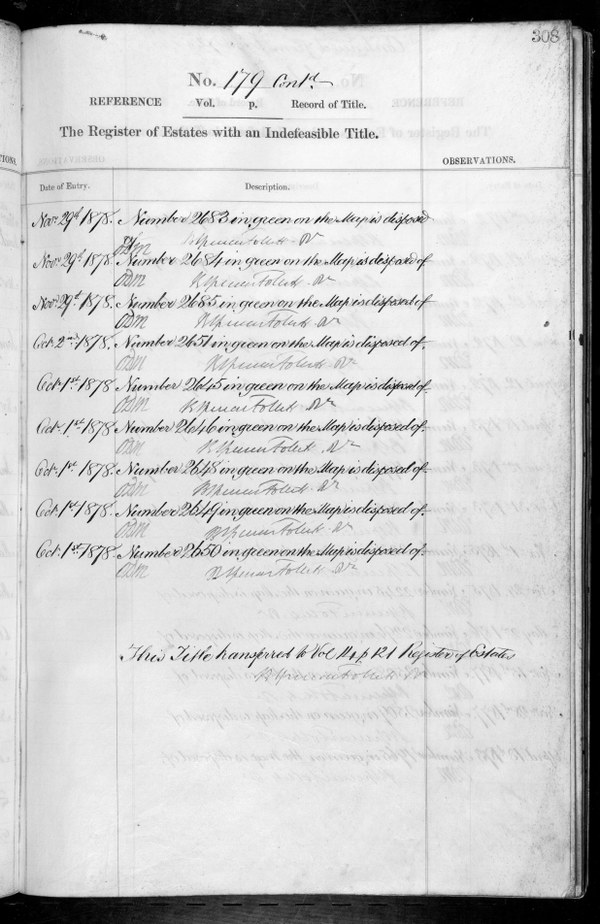 308
No. 179 Contd
REFERENCE Vol. p. Record of Title.
The Register of Estates with an Indefeasible Title.
TIONS.
OBSERVATIONS.
Date of Entry. Description.
Novr 29th 1878. Number 2683 in green on the Map is disposed
of
ODM
Novr 29th 1878. Number 2684 in green on the Map is disposed of
ODM
Novr 29th 1878. Number 2685 in green on the Map is disposed of
ODM
Oct 2nd 1878. Number 2651 in green on the Map is disposed of.
ODM
Oct 1st 1878 Number 2645 in green on the Map is disposed of
ODM
Oct. 1st 1878 Number 2646 in green on the Map is disposed of.
ODM
Oct. 1st 1878. Number 2648 in green on the Map is disposed of.
ODM
Oct 1st 1878. Number 2649 in green on the Map is disposed of.
ODM
Oct. 1st 1878. Number 2650 in green on the Map is disposed of.
ODM
This Title transferred to Vol p 121 Register of Estates